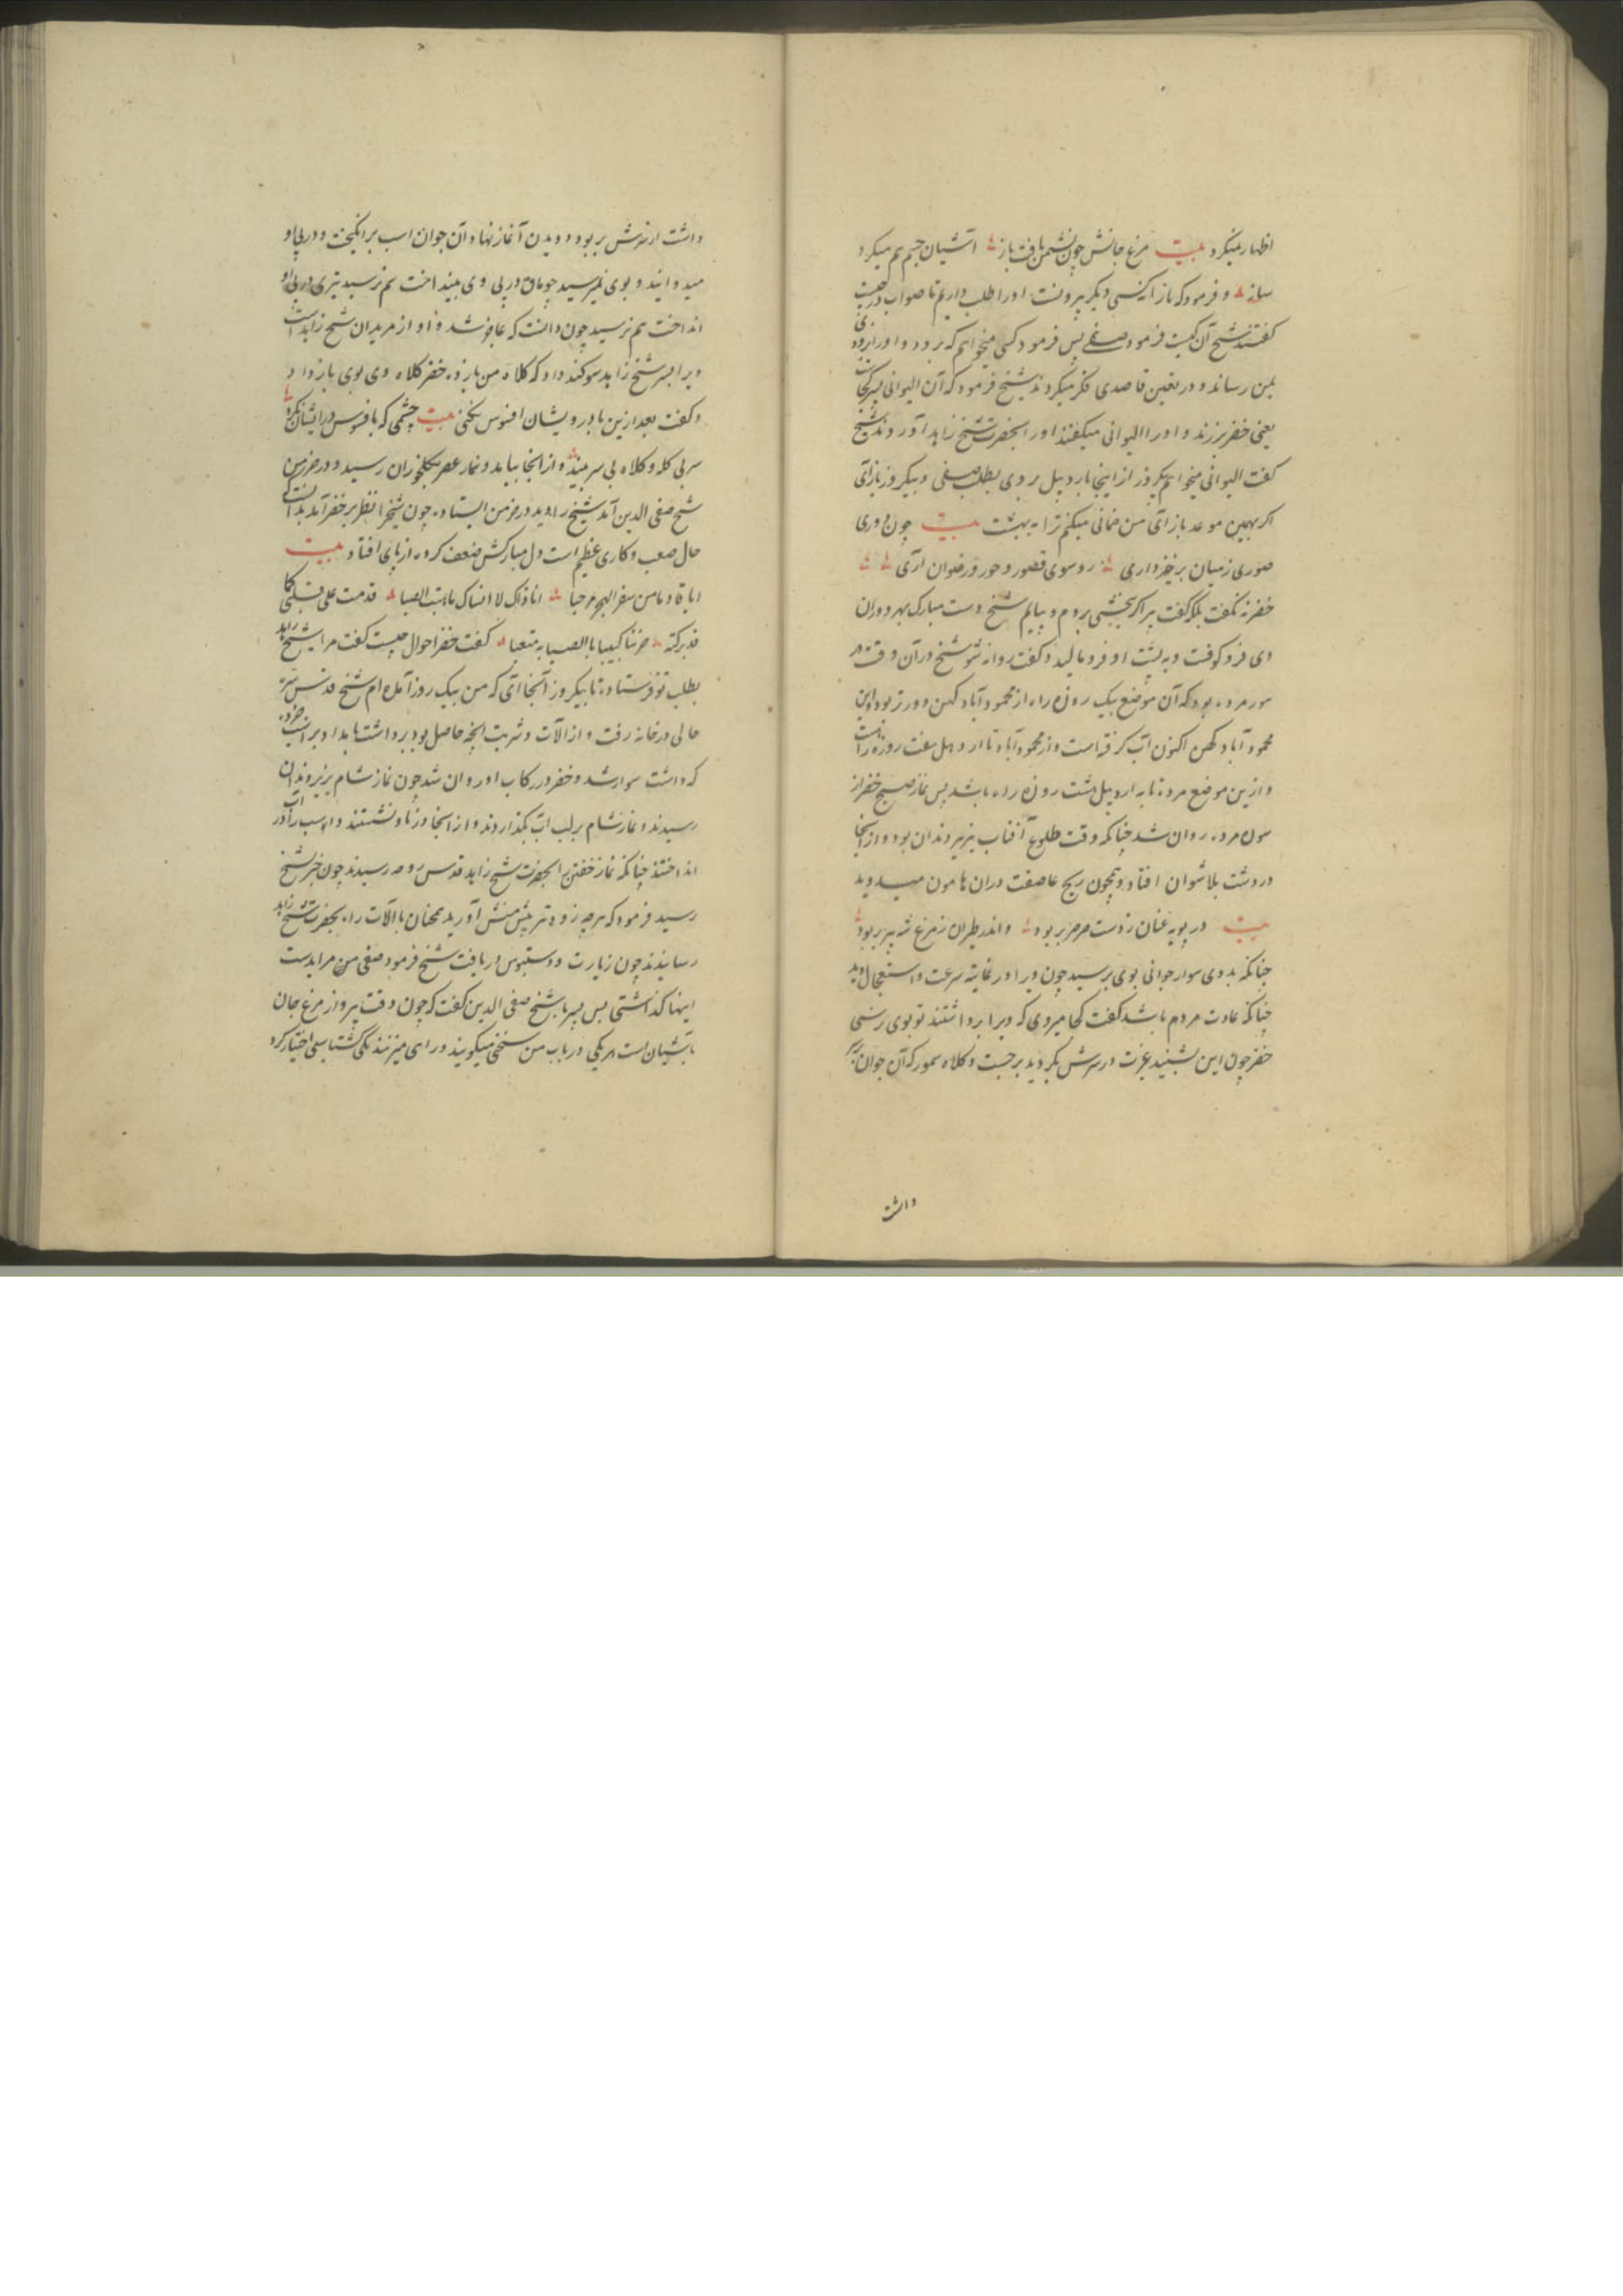 اظهار میکرد بیت مرغ جانش چون نشیمن یافت باز آشیان جسم هم میکرد
ساز و فرمود که باز آن کسی دیگر بیرونست او را طلب داریم تا صواب چیست
گفتند شیخ آن کیست فرمود صفی پس فرمود کسی میخواهم که برود و او را بزودی
بمن رساند و در تعیین قاصدی فکر میکردند شیخ فرمود که آن الیوانی پسر کجاست
یعنی خضر بزرند و او را الیوانی میگفتند او را بحضرت شیخ زاهد آوردند شیخ
گفت الیوانی میخواهم یکروز از اینجا باردبیل بروی بطلب صفی و بیکروز بازآی
اگر بهمین موعد بازآی من ضمانی میکنم ترا به بهشت بیت چون دوری
صوری ز میان برخیزد آری رو سوی قصور و حور و رضوان آری
خضر نه نگفت بلکه گفت پیر اگر بخشی بروم و بیایم شیخ دست مبارک بهر دو ران
وی فرو کوفت و به پشت او فرو مالید و گفت روانه شو شیخ در آن وقت در
سور مرده بود که آن موضع یک روزه راه از محمودآباد کهن دورتر بود و این
محمودآباد کهن اکنون آب گرفته است و از محمودآباد تا اردبیل هفت روزه راهست
و ازین موضع مرده تا به اردبیل هشت روزه راه باشد پس نماز صبح خضر از
سور مرده روان شد چنانکه وقت طلوع آفتاب بزیر دندان بود و از آنجا
در دشت بلاشوان افتاد و همچون ریح عاصفت در آن هامون میدوید
بیت در پویه عنان ز دست صرصر بربود و اندر طیران ز مرغ شهپر بربود
چنانکه بدوی سوار جوانی بوی برسید چون ویرا در غایت سرعت و استعجال دید
چنانکه عادت مردم باشد گفت کجا میروی که ویرا برداشتند تو بوی نرسی
خضر چون این بشنید غیرت در سرش بگردید برجست و کلاه سمور که آن جوان بر سر
داشت
داشت از سرش بربود و دویدن آغاز نهاد آن جوان اسب برانگیخت و در پی او
میدوانید و بوی نمیرسید چوماق در پی وی بینداخت هم نرسید تیری در پی او
انداخت هم نرسید چون دانست که عاجز شد و او از مریدان شیخ زاهد است
ویرا بسر شیخ زاهد سوگند داد که کلاه من بازده خضر کلاه وی بوی باز داد
و گفت بعد ازین با درویشان افسوس نکنی بیت چشمی که بافسوس در ایشان نگرد
سر بی کله و کلاه بی سر بیند و از آنجا بیامد و نماز عصر بکلخوران رسید و در خرمن
شیخ صفی الدین آمد شیخ را دید در خرمن ایستاده چون شیخ را نظر بر خضر آمد بدانست که
حال صعب و کاری عظیم است دل مبارکش ضعف کرده از پای افتاد بیت
ایا قادما من سفر الهجر مرحبا انا ذاک لا انساک ما هبت الصبا قدمت علی قلبی کما
قد ترکته حزینا کئیبا بالصبابه متعبا گفت خضر احوال چیست گفت مرا شیخ زاهد
بطلب تو فرستاد تا بیکروز آنجا آی که من بیک روز آمده ام شیخ قدس سره
حالی در خانه رفت و از آلات و شربت آنچه حاصل بود برداشت بامداد بر اسب خرد
که داشت سوار شد و خضر در رکاب او روان شد چون نماز شام بزیر دندان
رسیدند و نماز شام بر لب آب بگذاردند و از آنجا در ناو نشستند و اسب را در آب
انداختند چنانکه نماز خفتن بحضرت شیخ زاهد قدس روحه رسیدند چون خبر شیخ
رسید فرمود که هرچه زودتر پیش منش آورید همچنان با آلات راه بحضرت شیخ زاهد
رسانیدند چون زیارت و دستبوس دریافت شیخ فرمود صفی من مرا بدست
اینها گذاشتی پس پیر با شیخ صفی الدین گفت که چون وقت پرواز مرغ جان
بآشیان است هر یکی در باب من سخنی میگویند و رای میزنند یکی گشتاسفی اختیار کرد